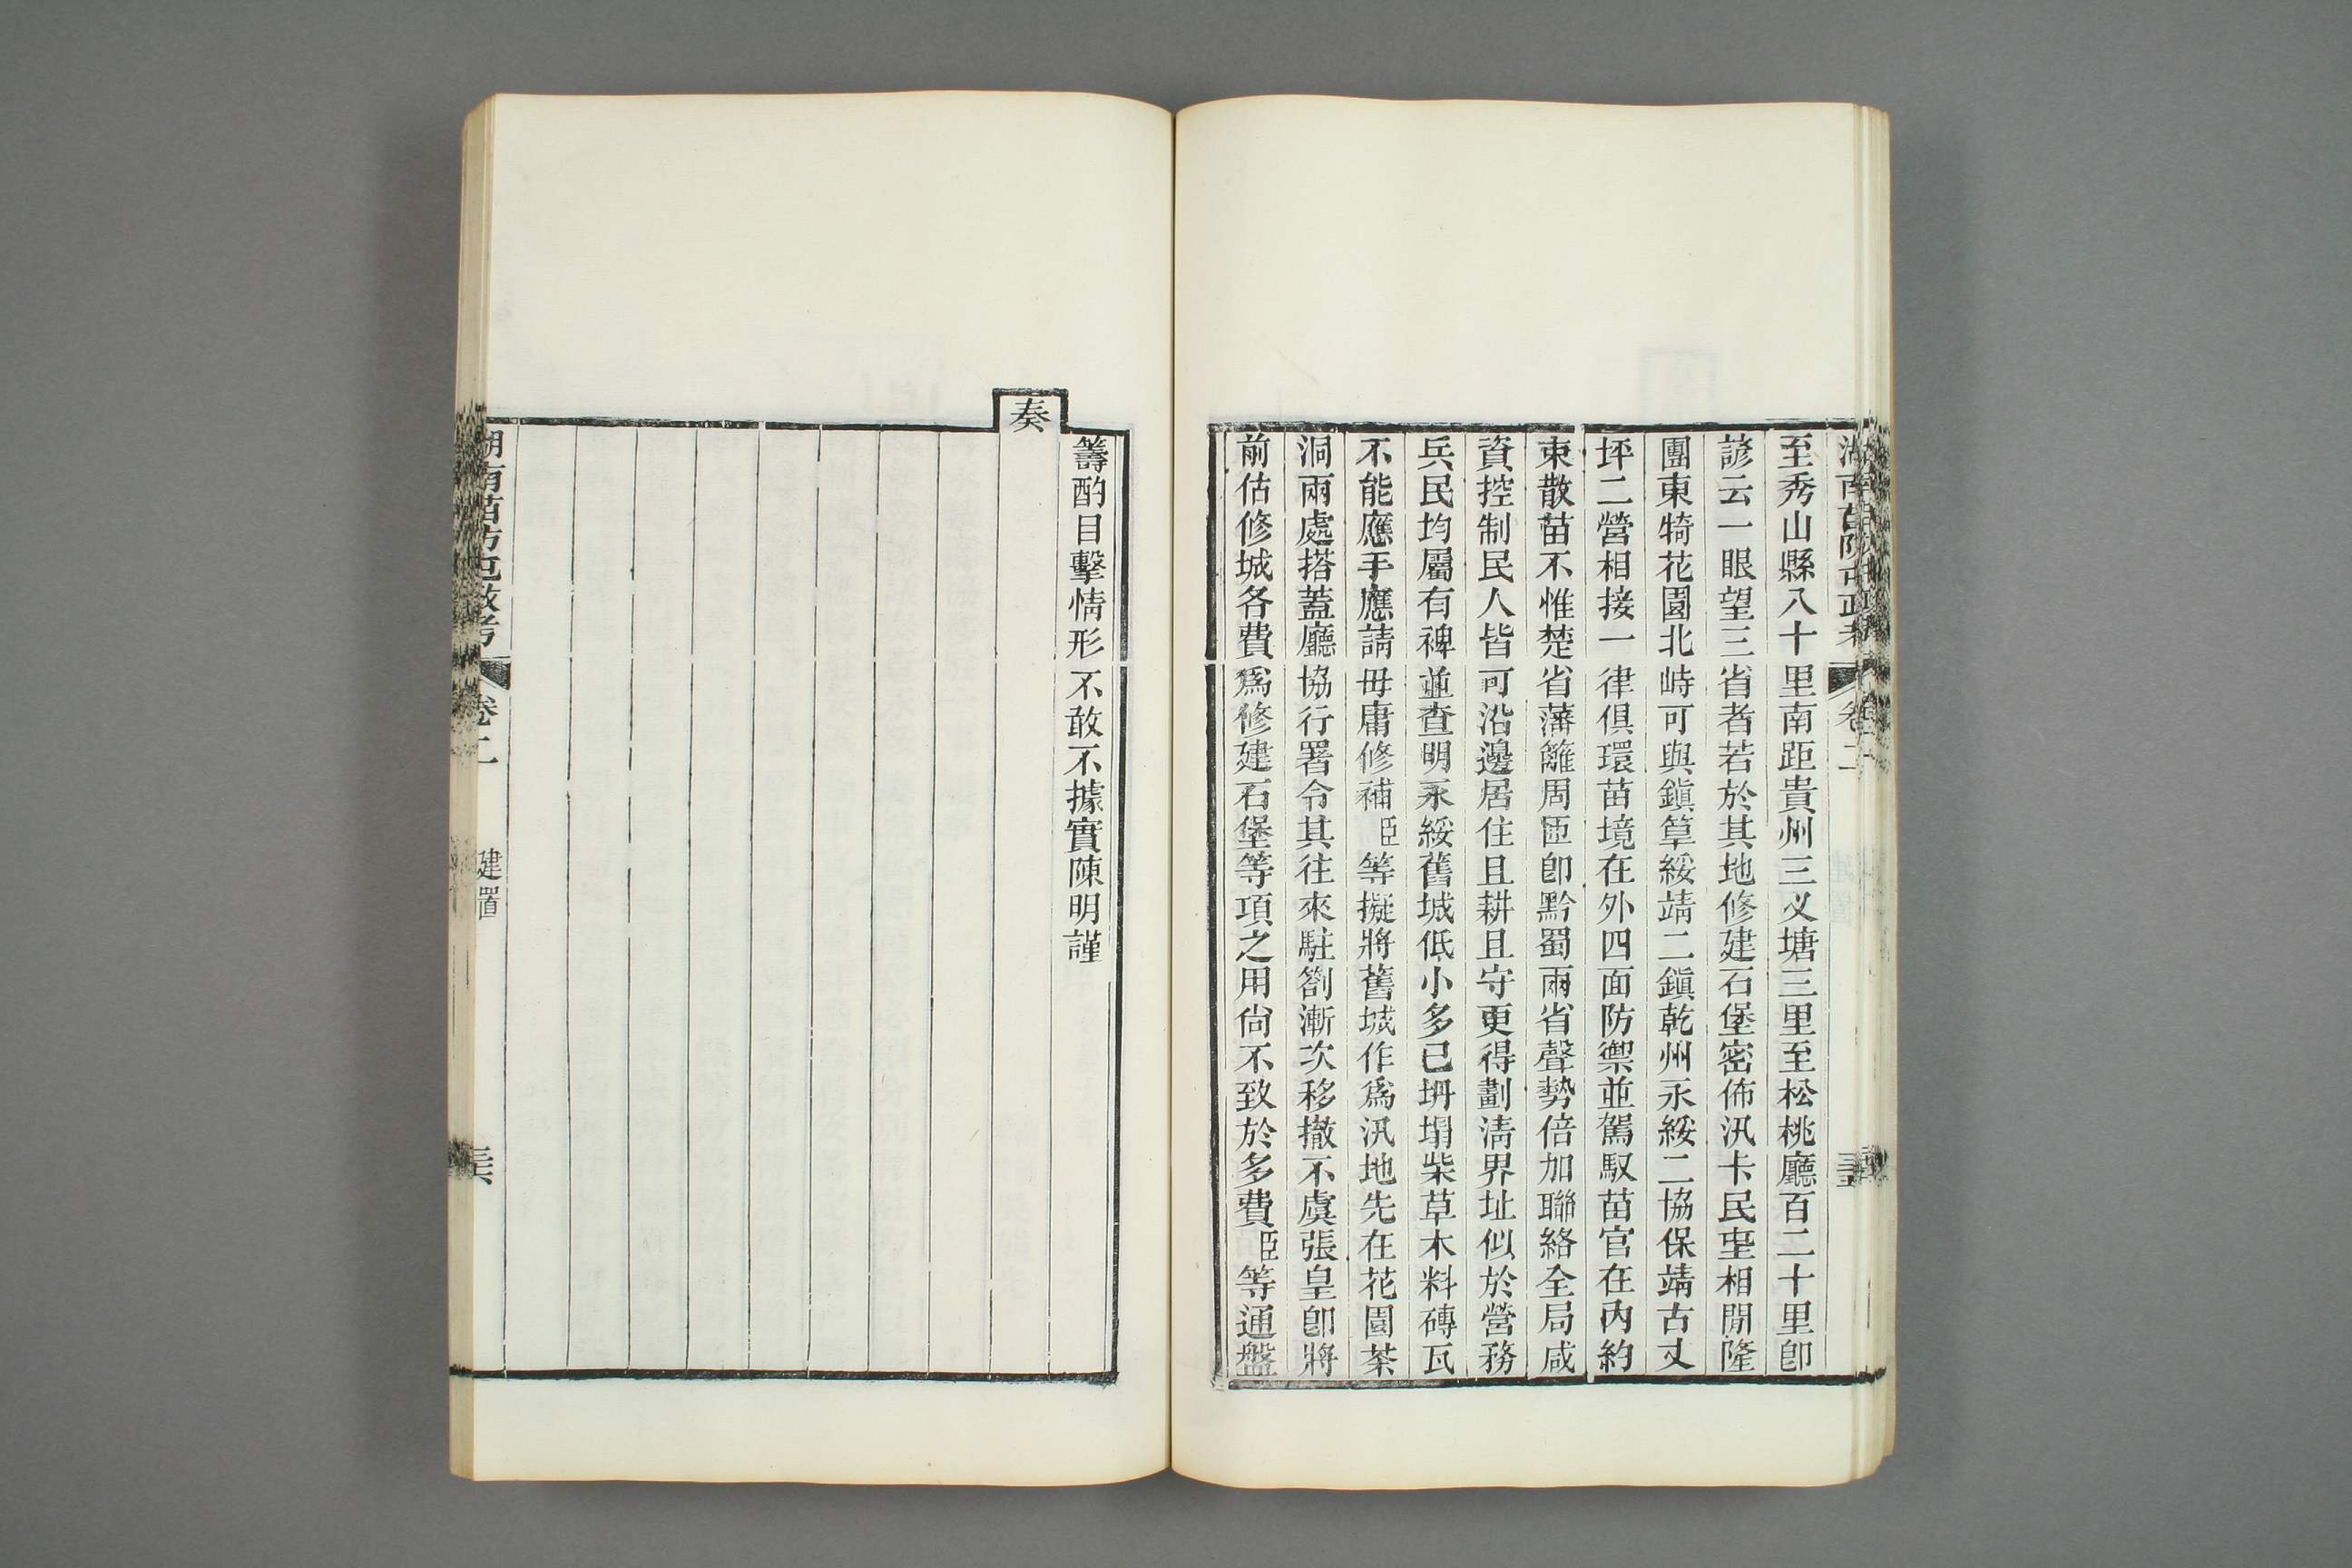 湖南苗防屯政考 卷二 三五
至秀山縣八十里南距貴州三义塘三里至松桃廳百二十里卽
諺云一眼望三省者若於其地修建石堡密佈汛卡民屯相閒隆
團東犄花園北峙可與鎭筸綏靖二鎭乾州永綏二協保靖古丈
坪二營相接一律俱環苗境在外四面防禦並駕馭苗官在內約
束散苗不惟楚省藩籬周匝卽黔蜀兩省聲勢倍加聯絡全局咸
資控制民人皆可沿邊居住且耕且守更得劃淸界址似於營務
兵民均屬有裨並查明永綏舊城低小多已坍塌柴草木料磚瓦
不能應手應請毋庸修補臣等擬將舊城作爲汛地先在花園茶
洞兩處搭蓋廳協行署令其往來駐劄漸次移撤不虞張皇卽將
前估修城各費爲修建石堡等項之用尙不致於多費臣等通盤
籌酌目擊情形不敢不據實陳明謹
奏
湖南苗防屯政考 卷二 建置 三六